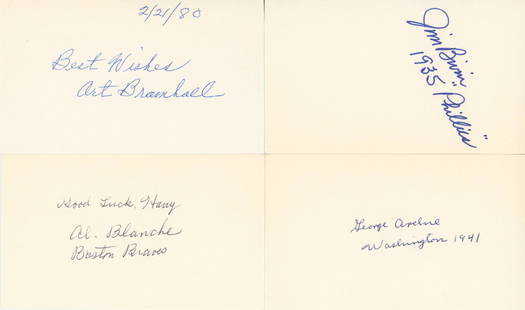 2/21/80
Best Wishes
Art Bramhall
Jim Bivin
1935 "Phillies"
Good Luck, Harry
Al. Blanche
Boston Braves
George Archie
Washington 1941